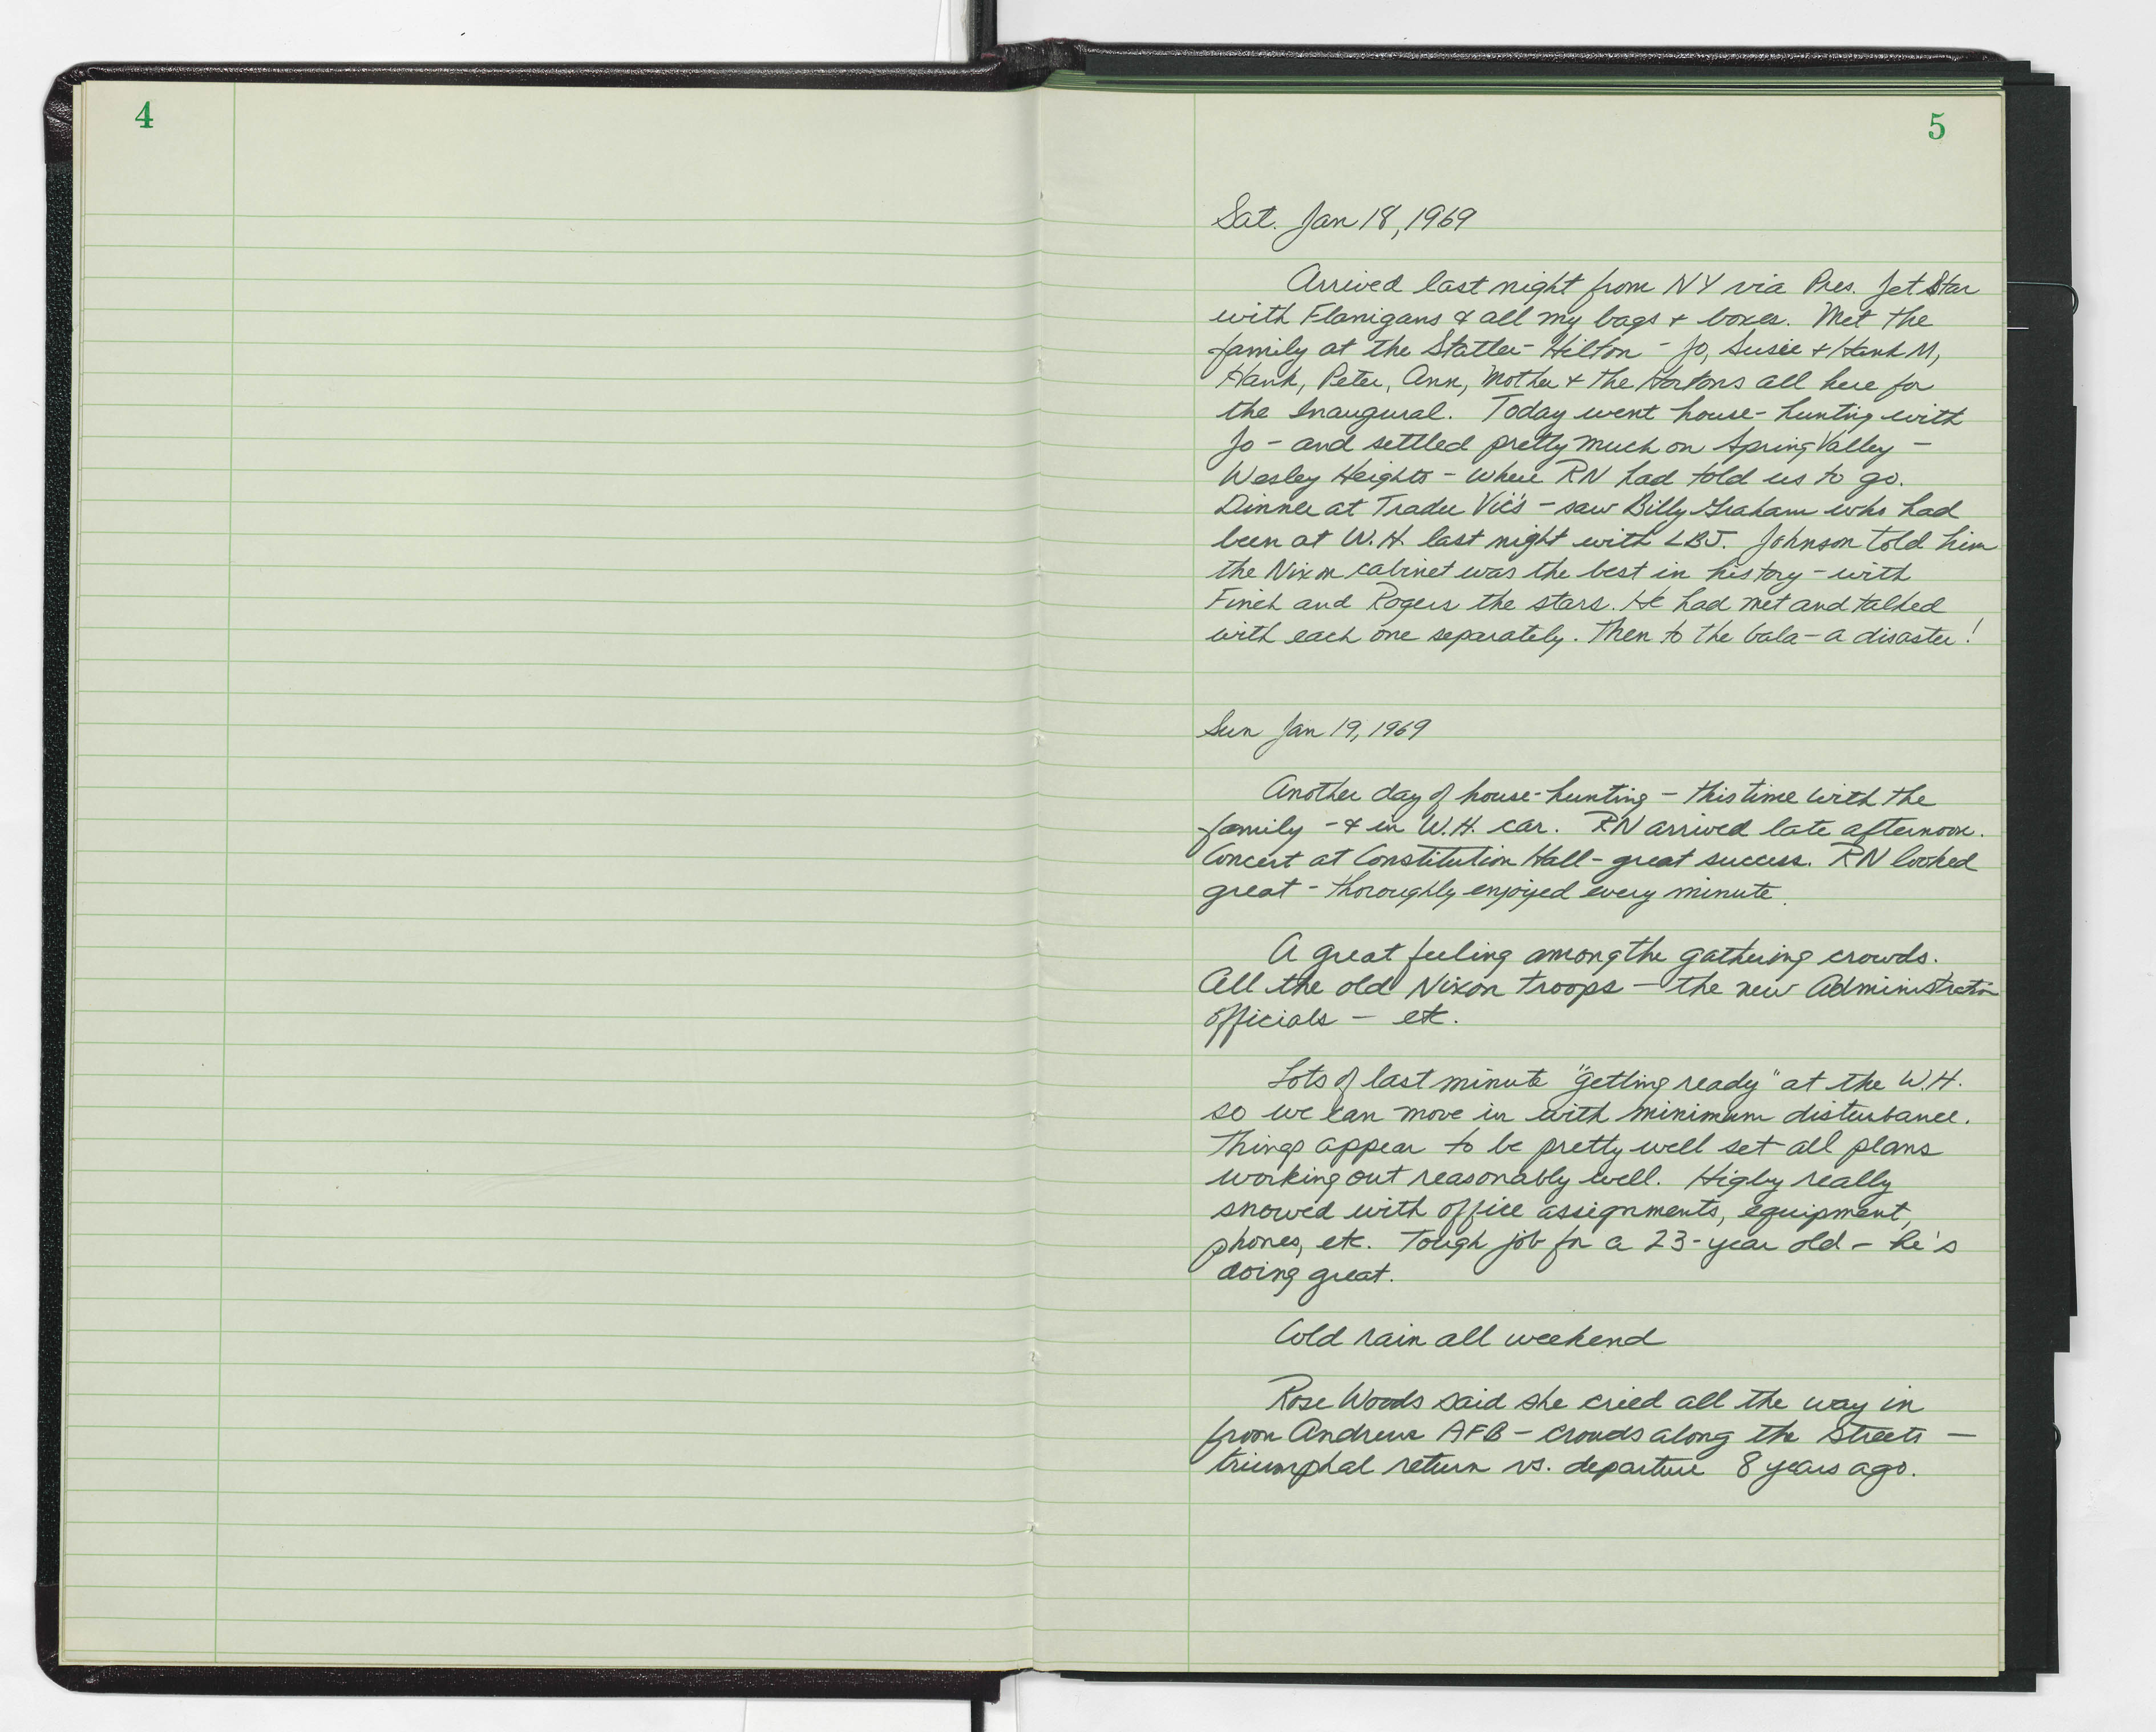 4
5
Sat. Jan 18, 1969
Arrived last night from NY via Pres. Jet Star
with Flanigans & all my bags + boxes. Met the
family at the Statler-Hilton - Jo, Susie + Hank M,
Hank, Peter, Ann, Mother + the Hortons all here for
the Inaugural. Today went house-hunting with
Jo - and settled pretty much on Spring Valley -
Wesley Heights - where RN had told us to go.
Dinner at Trader Vic's - saw Billy Graham who had
been at W.H. last night with LBJ. Johnson told him
the Nixon cabinet was the best in history - with
Finch and Rogers the stars. He had met and talked
with each one separately. Then to the Gala - a disaster!
Sun Jan 19, 1969
Another day of house-hunting - this time with the
family - & in W.H. car. RN arrived late afternoon.
Concert at Constitution Hall - great success. RN looked
great - thoroughly enjoyed every minute.
A great feeling among the gathering crowds.
All the old Nixon troops - the new Administration
officials - etc.
Lots of last minute "getting ready" at the W.H.
so we can move in with minimum disturbance.
Things appear to be pretty well set all plans
working out reasonably well. Higby really
snowed with office assignments, equipment,
phones, etc. Tough job for a 23-year old - he's
doing great.
Cold rain all weekend
Rose Woods said she cried all the way in
from Andrews AFB - crowds along the streets -
triumphal return vs. departure 8 years ago.